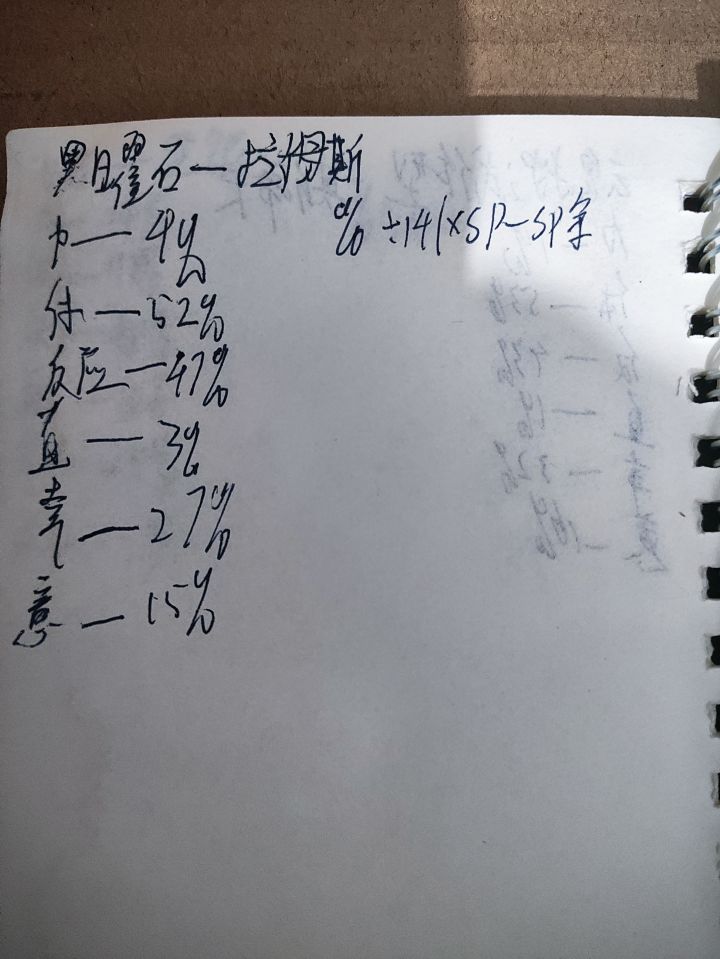 黑曜石—拉姆斯
力—4% %÷141×SP—SP余
体—52%
反应—47%
直—3%
幸—27%
意—15%